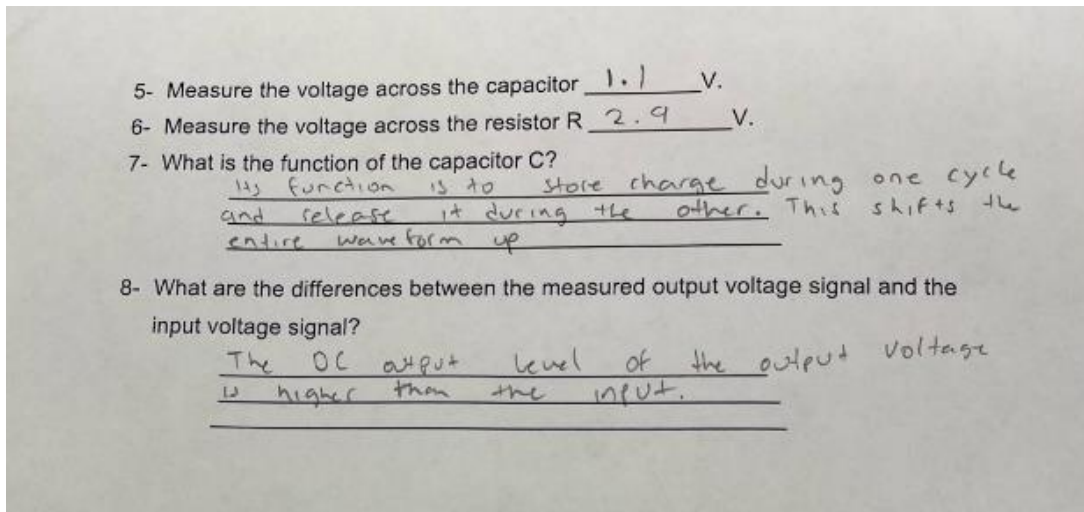 5- Measure the voltage across the capacitor 1.1 V.
6- Measure the voltage across the resistor R 2.9 V.
7- What is the function of the capacitor C?
Its function is to store charge during one cycle
and release it during the other. This shifts the
entire waveform up
8- What are the differences between the measured output voltage signal and the
input voltage signal?
The DC output level of the output voltage
is higher than the input.